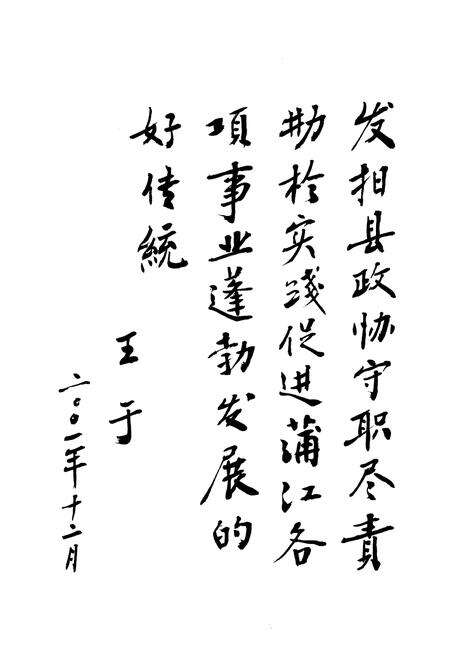 发扬县政协守职尽责
勤於实践促进蒲江各
項事业蓬勃发展的
好传統
王于
二〇〇一年十二月